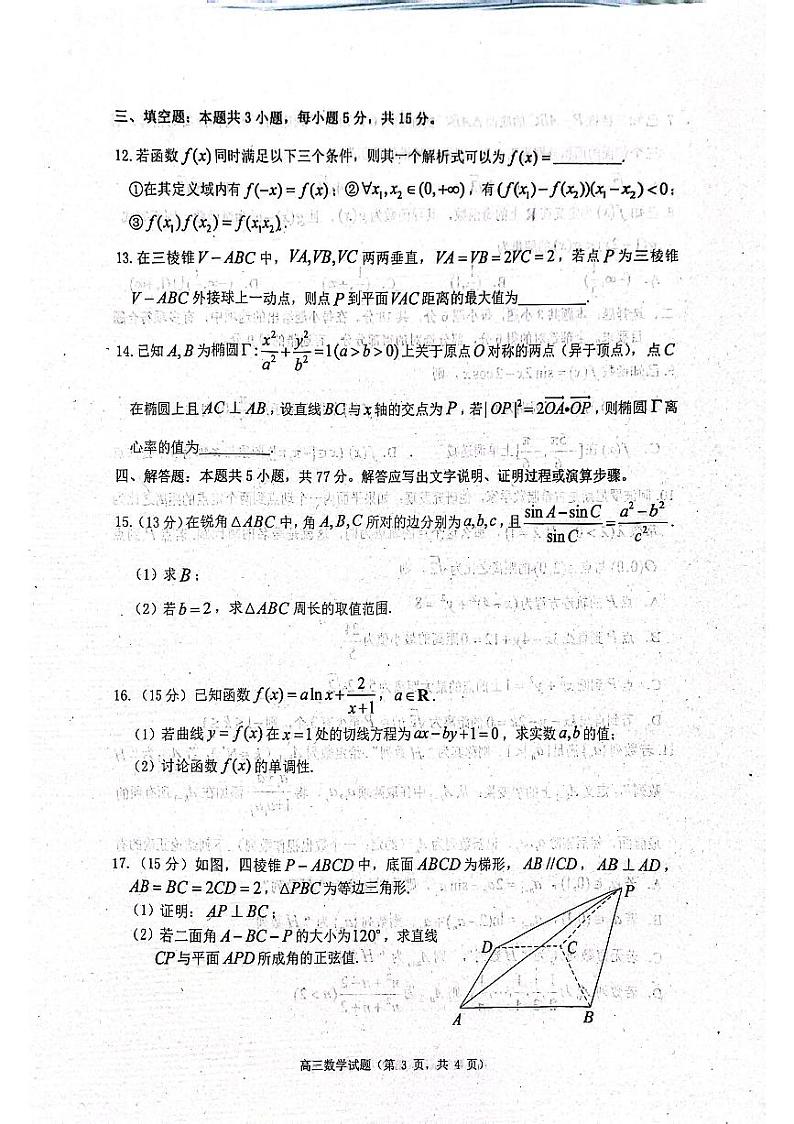 三、填空题：本题共3小题，每小题5分，共15分。
12.若函数f(x)同时满足以下三个条件，则其一个解析式可以为f(x)=________.
①在其定义域内有f(−x)=f(x)；②∀x₁,x₂∈(0,+∞)，有(f(x₁)−f(x₂))(x₁−x₂)<0；
③f(x₁)f(x₂)=f(x₁x₂).
13.在三棱锥V−ABC中，VA,VB,VC两两垂直，VA=VB=2VC=2，若点P为三棱锥
V−ABC外接球上一动点，则点P到平面VAC距离的最大值为________.
14.已知A,B为椭圆Γ:x²/a²+y²/b²=1(a>b>0)上关于原点O对称的两点（异于顶点），点C
在椭圆上且AC⊥AB，设直线BC与x轴的交点为P，若|OP|²=2OA•OP，则椭圆Γ离
心率的值为________.
四、解答题：本题共5小题，共77分。解答应写出文字说明、证明过程或演算步骤。
15.(13分)在锐角△ABC中，角A,B,C所对的边分别为a,b,c，且(sin A−sin C)/sin C=(a²−b²)/c².
（1）求B；
（2）若b=2，求△ABC周长的取值范围.
16.（15分）已知函数f(x)=alnx+2/(x+1)，a∈R.
（1）若曲线y=f(x)在x=1处的切线方程为ax−by+1=0，求实数a,b的值；
（2）讨论函数f(x)的单调性.
17.（15分）如图，四棱锥P−ABCD中，底面ABCD为梯形，AB//CD，AB⊥AD，
AB=BC=2CD=2，△PBC为等边三角形.
（1）证明：AP⊥BC；
（2）若二面角A−BC−P的大小为120°，求直线
CP与平面APD所成角的正弦值.
P
D
C
A
B
高三数学试题（第 3 页，共 4 页）